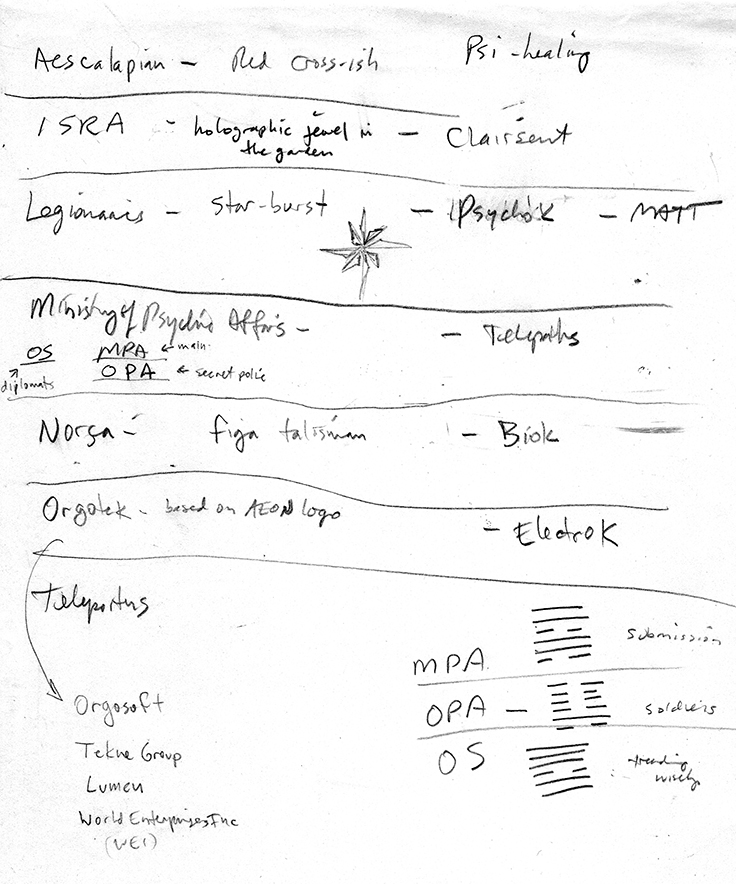 Aescalapian - Red cross-ish Psi-healing
ISRA - holographic jewel in - Clairsent
the garden
Legionnaires - Star-burst - Psychok - MATT
Ministry of Psychic Affairs - - Telepaths
OS MPA ← main
diplomats OPA ← secret police
Norça - figa talisman - Biok
Orgotek - based on AEON logo - ElectroK
Teleporters
MPA submission
Orgosoft OPA - soldiers
Tekne Group OS treading
Lumen wisely
World Enterprises Inc
(WEI)